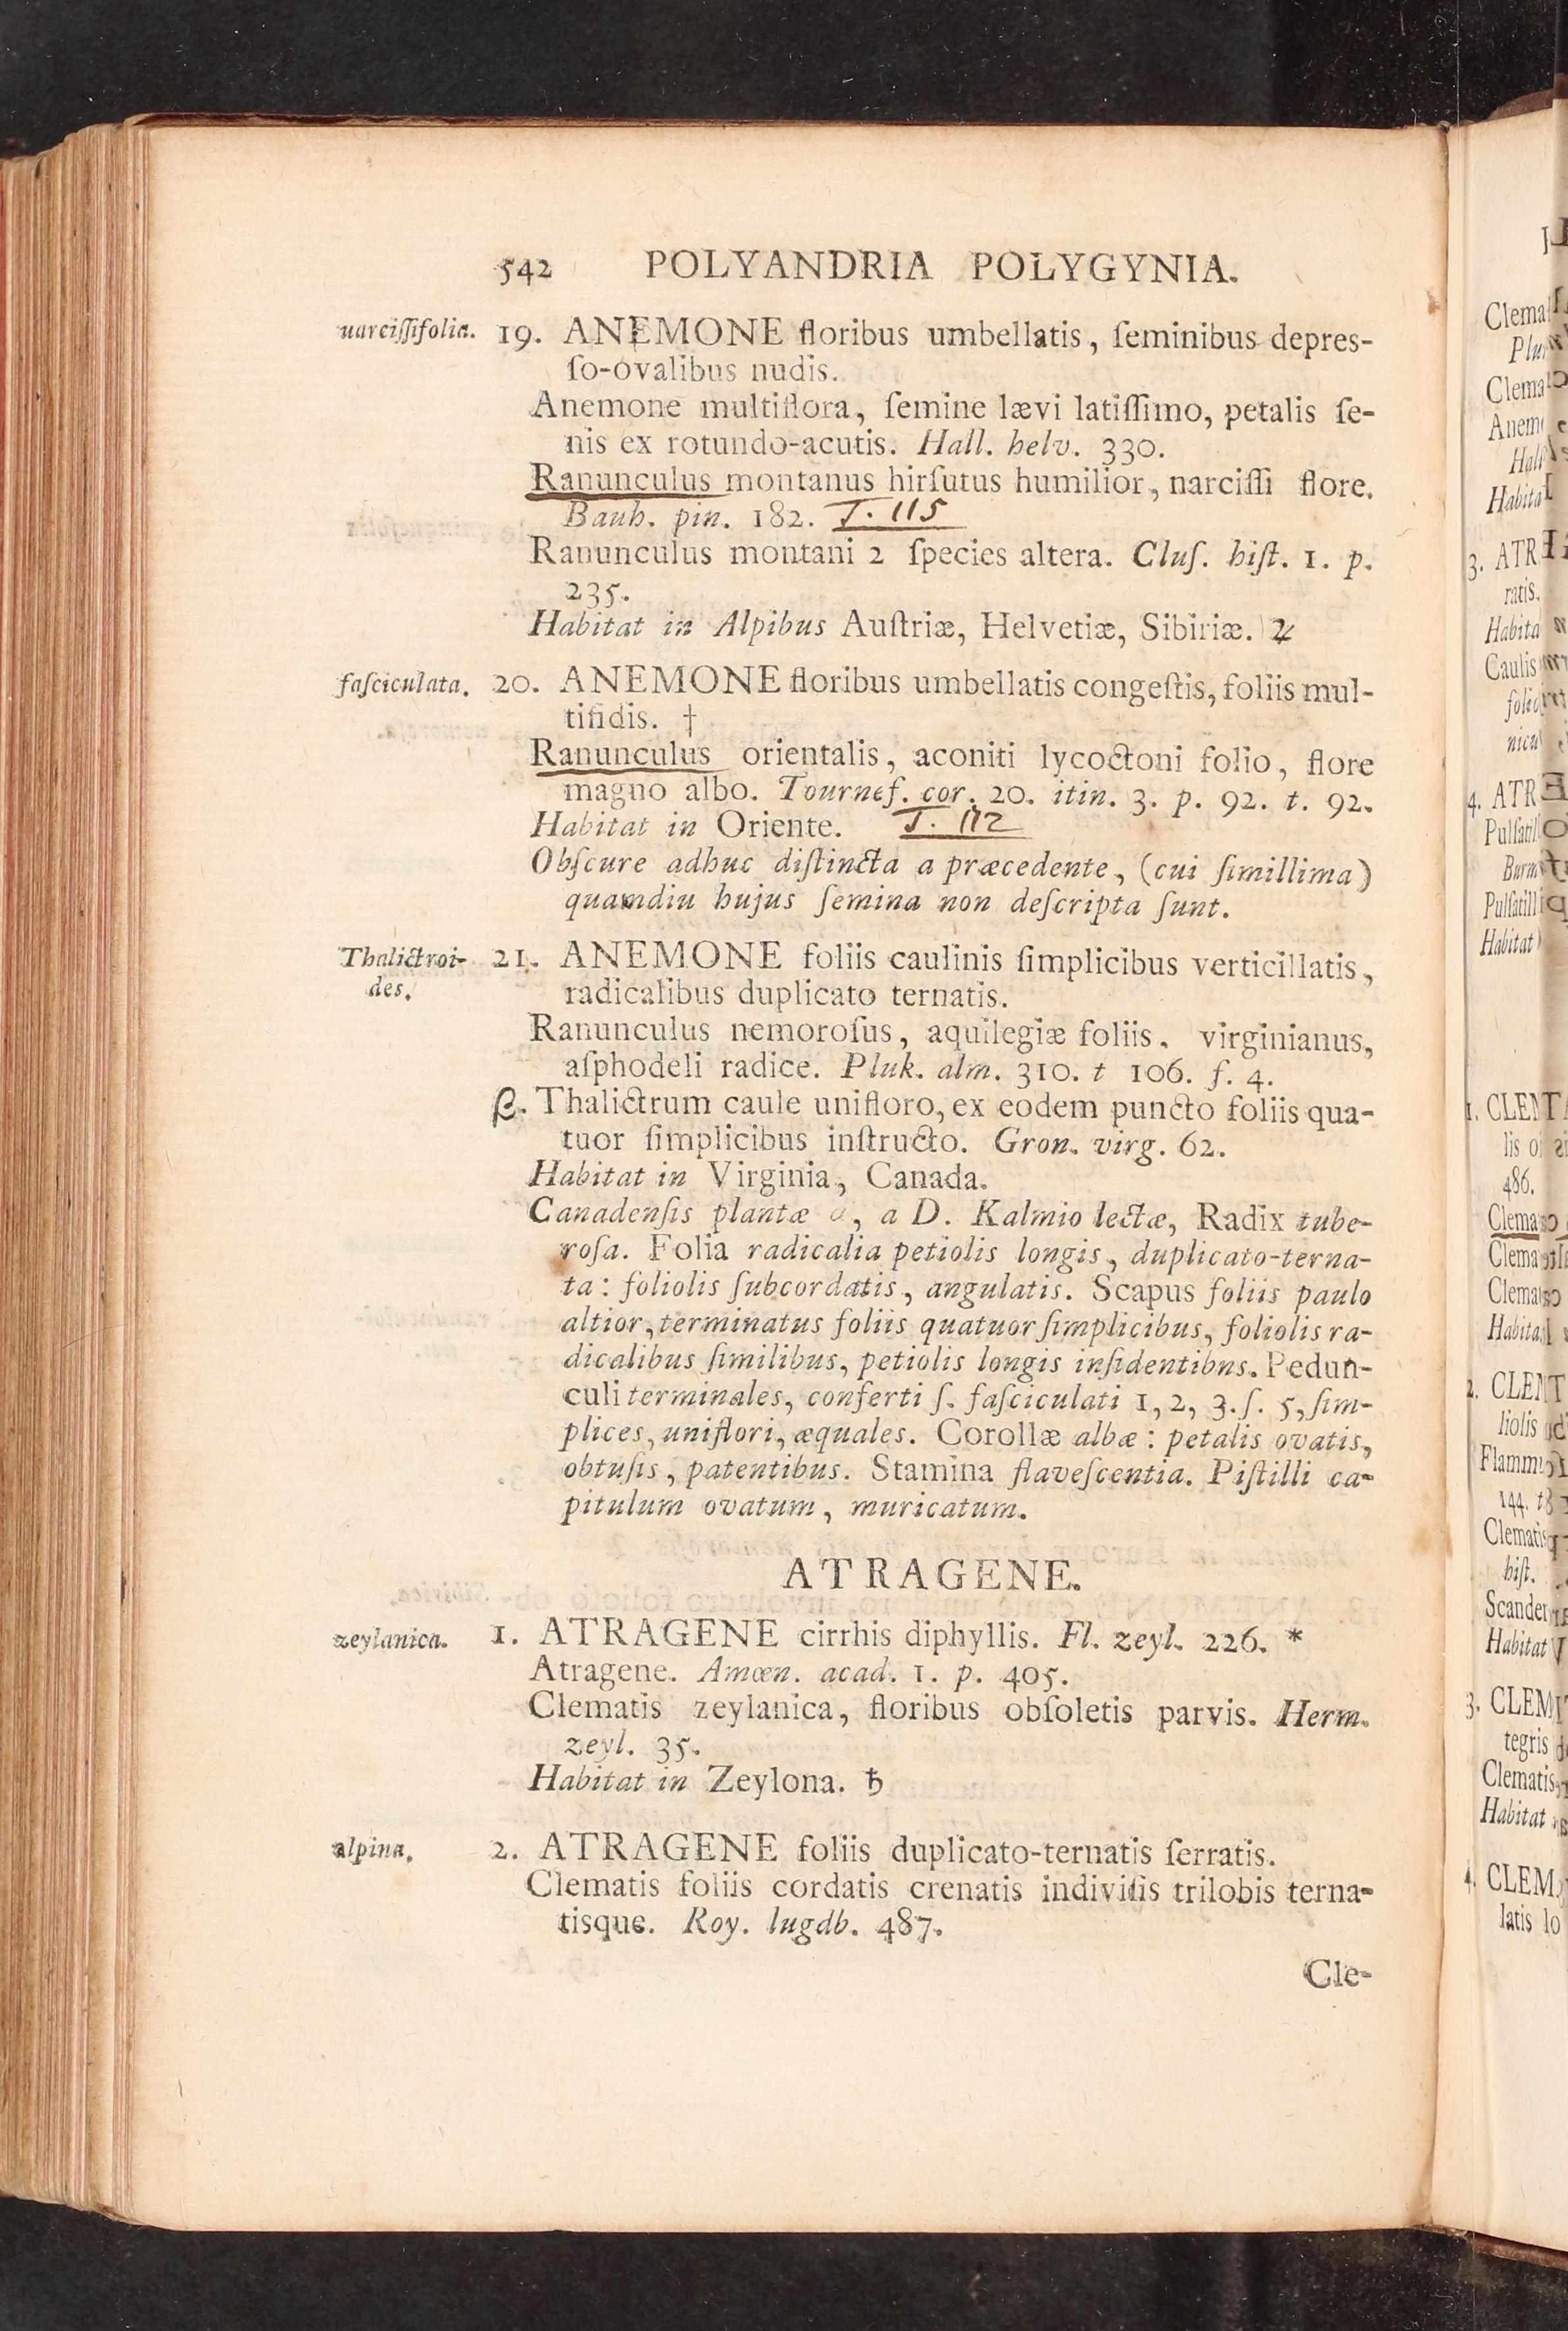 542 POLYANDRIA POLYGYNIA.
narciſſifolia. 19. ANEMONE floribus umbellatis, ſeminibus depreſ-
ſo-ovalibus nudis.
Anemone multiflora, ſemine lævi latiſſimo, petalis ſe-
nis ex rotundo-acutis. Hall. helv. 330.
Ranunculus montanus hirſutus humilior, narciſſi flore.
Bauh. pin. 182. T. 115
Ranunculus montani 2 ſpecies altera. Cluſ. hiſt. 1. p.
235.
Habitat in Alpibus Auſtriæ, Helvetiæ, Sibiriæ. ♃
faſciculata. 20. ANEMONE floribus umbellatis congeſtis, foliis mul-
tifidis. †
Ranunculus orientalis, aconiti lycoctoni folio, flore
magno albo. Tournef. cor. 20. itin. 3. p. 92. t. 92.
Habitat in Oriente. T. 172
Obſcure adhuc diſtincta a præcedente, (cui ſimillima)
quamdiu hujus ſemina non deſcripta ſunt.
Thalictroi- 21. ANEMONE foliis caulinis ſimplicibus verticillatis,
des. radicalibus duplicato ternatis.
Ranunculus nemoroſus, aquilegiæ foliis, virginianus,
aſphodeli radice. Pluk. alm. 310. t 106. f. 4.
β. Thalictrum caule unifloro, ex eodem puncto foliis qua-
tuor ſimplicibus inſtructo. Gron. virg. 62.
Habitat in Virginia, Canada.
Canadenſis plantæ α, a D. Kalmio lectæ, Radix tube-
roſa. Folia radicalia petiolis longis, duplicato-terna-
ta: foliolis ſubcordatis, angulatis. Scapus foliis paulo
altior, terminatus foliis quatuor ſimplicibus, foliolis ra-
dicalibus ſimilibus, petiolis longis inſidentibns. Pedun-
culi terminales, conferti ſ. faſciculati 1, 2, 3. ſ. 5, ſim-
plices, uniflori, æquales. Corollæ albæ: petalis ovatis,
obtuſis, patentibus. Stamina flaveſcentia. Piſtilli ca-
pitulum ovatum, muricatum.
ATRAGENE.
zeylanica. 1. ATRAGENE cirrhis diphyllis. Fl. zeyl. 226. *
Atragene. Amœn. acad. 1. p. 405.
Clematis zeylanica, floribus obſoletis parvis. Herm.
zeyl. 35.
Habitat in Zeylona. ♄
alpina. 2. ATRAGENE foliis duplicato-ternatis ſerratis.
Clematis foliis cordatis crenatis indiviſis trilobis terna-
tisque. Roy. lugdb. 487.
Cle-